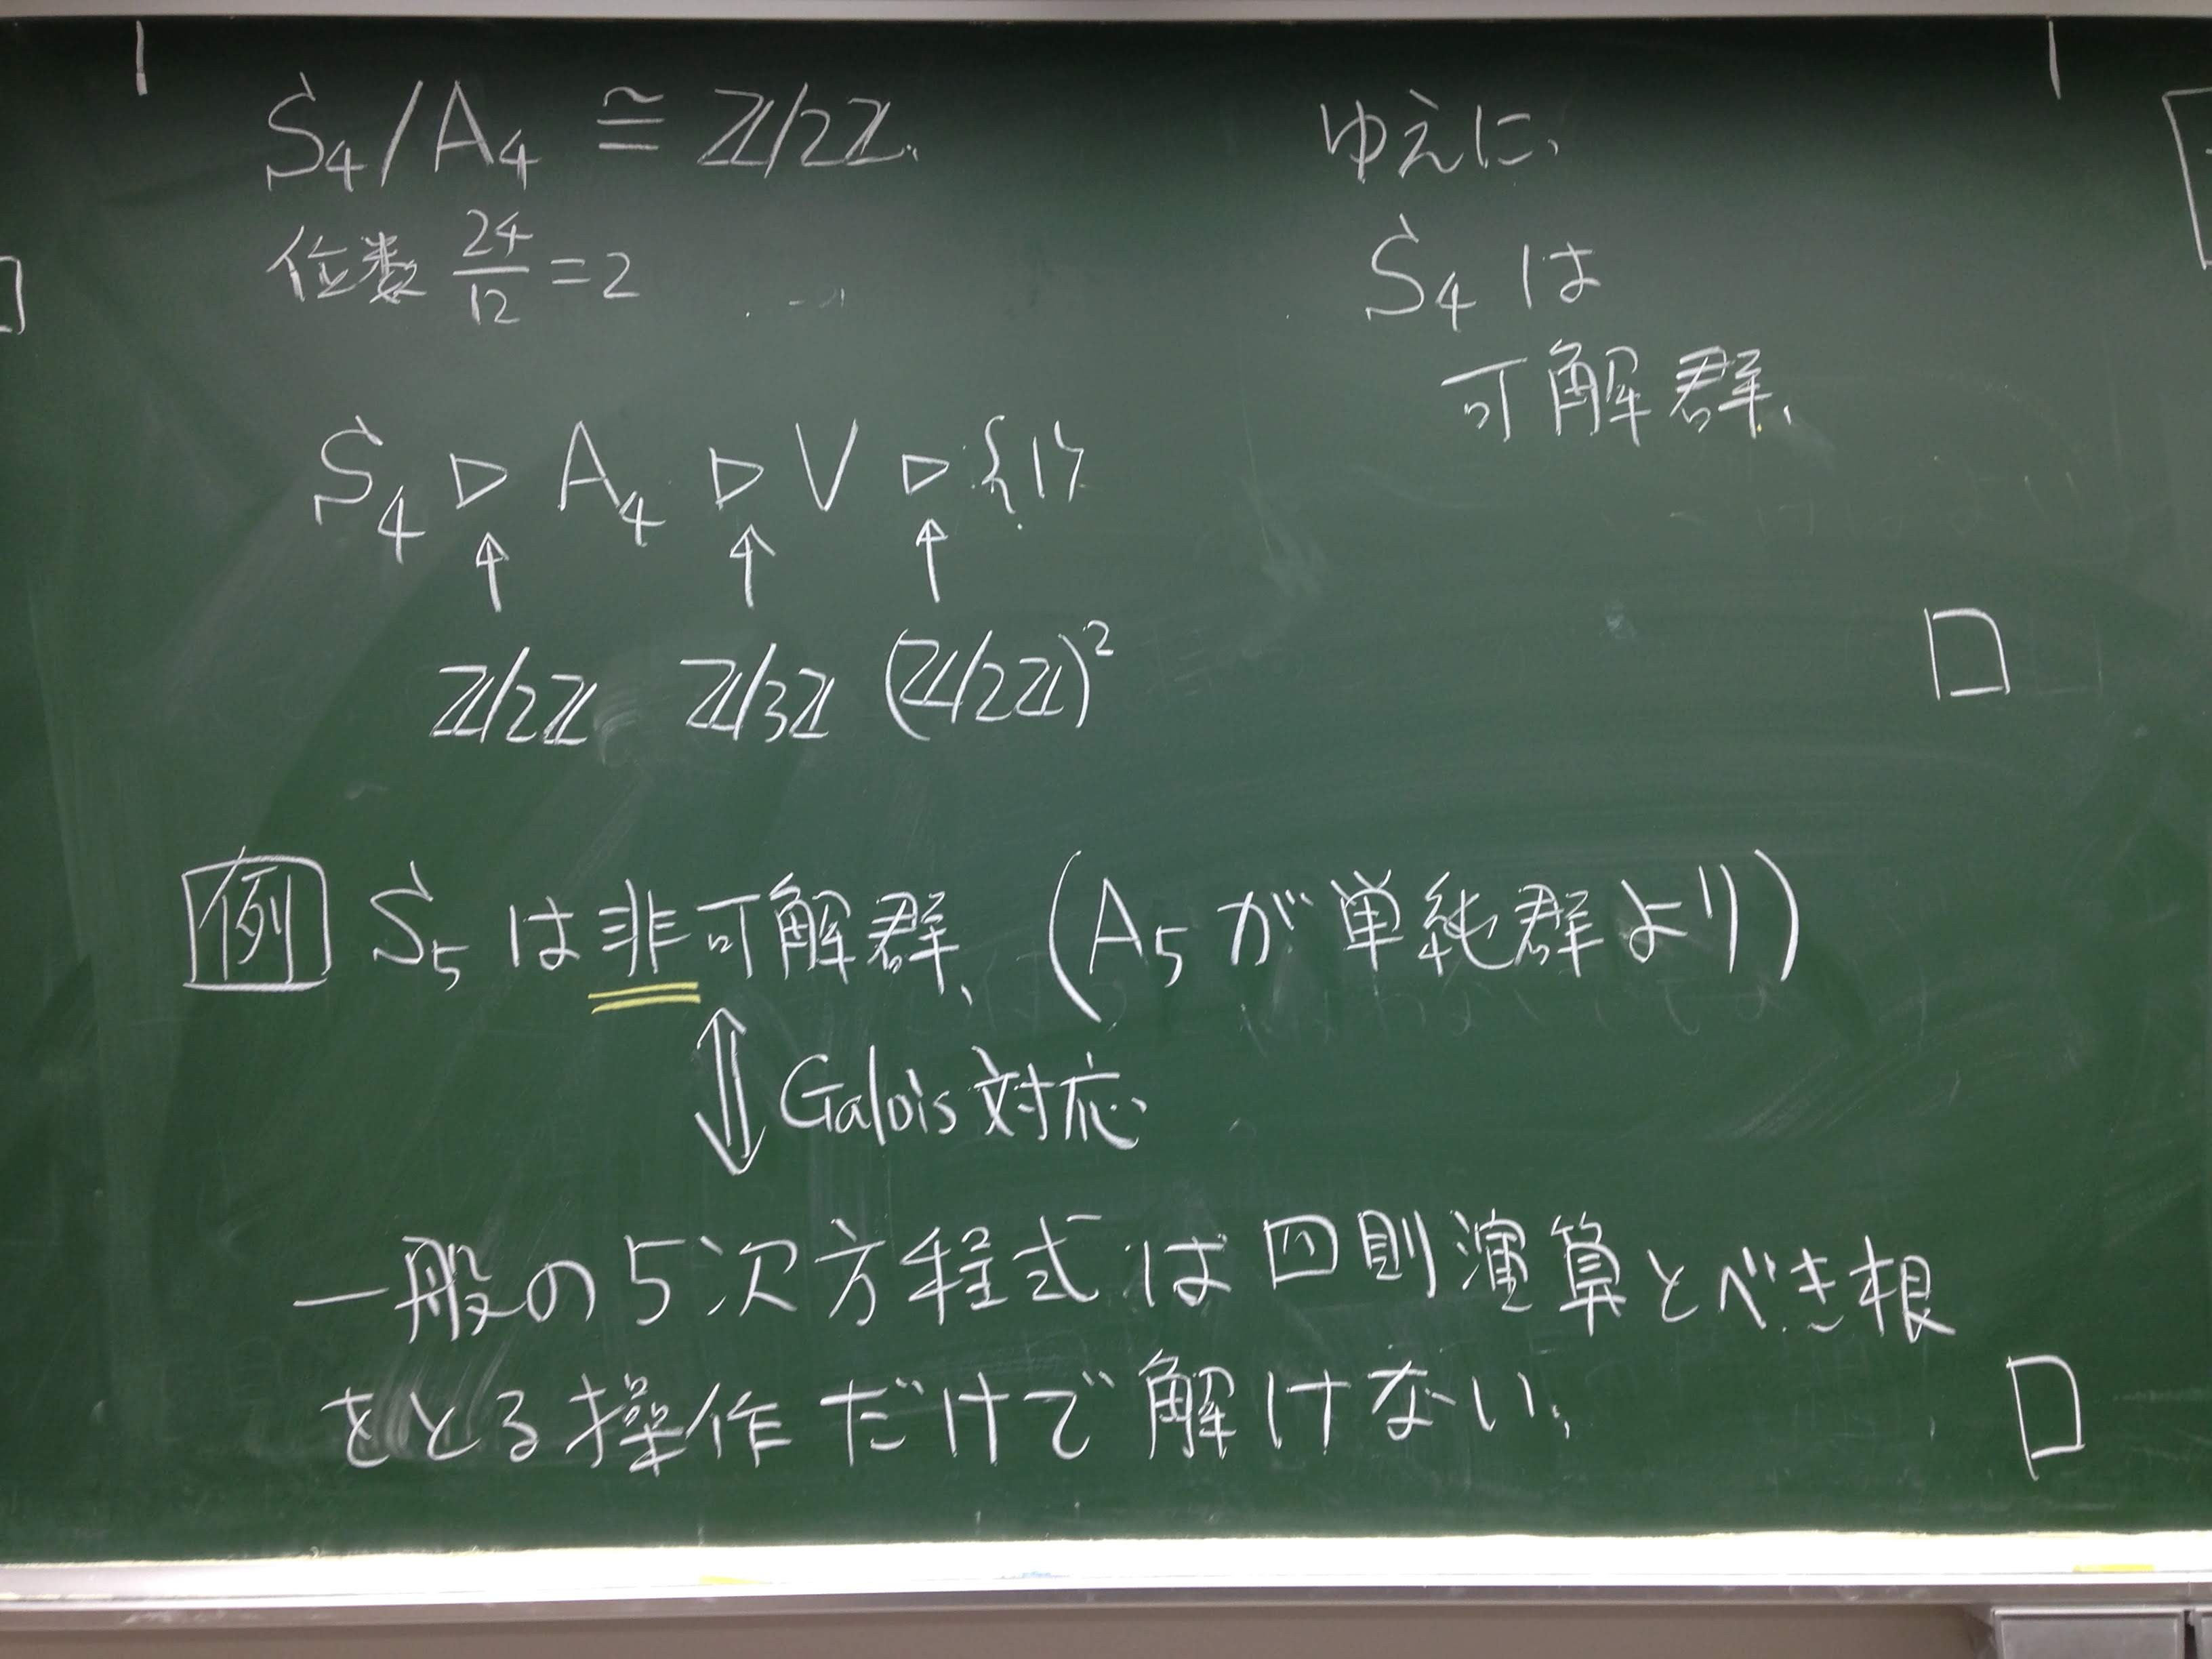 S₄/A₄ ≅ ℤ/2ℤ.
位数 24/12 = 2
S₄ ▷ A₄ ▷ V ▷ {1}
↑ ↑ ↑
ℤ/2ℤ ℤ/3ℤ (ℤ/2ℤ)²
ゆえに、
S₄ は
可解群.
□
例 S₅ は非可解群. (A₅ が単純群より)
⇕ Galois 対応
一般の5次方程式は四則演算とべき根
をとる操作だけで解けない.
□